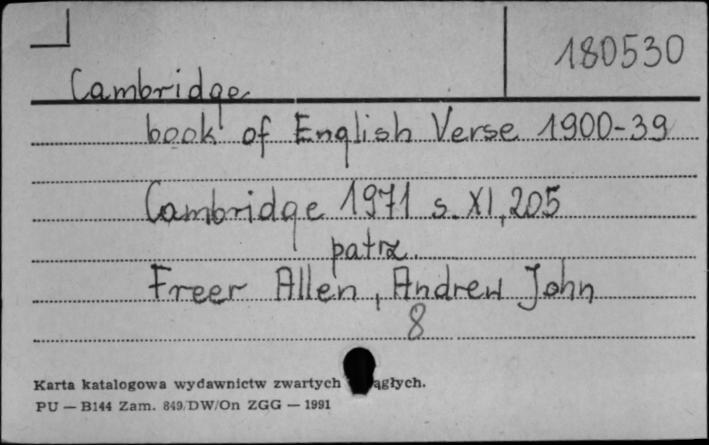 180530
Cambridge
book of English Verse 1900-39
Cambridge 1971 s. XI, 205
patrz.
Freer Allen, Andrew John
8
Karta katalogowa wydawnictw zwartych ągłych.
PU — B144 Zam. 849/DW/On ZGG — 1991